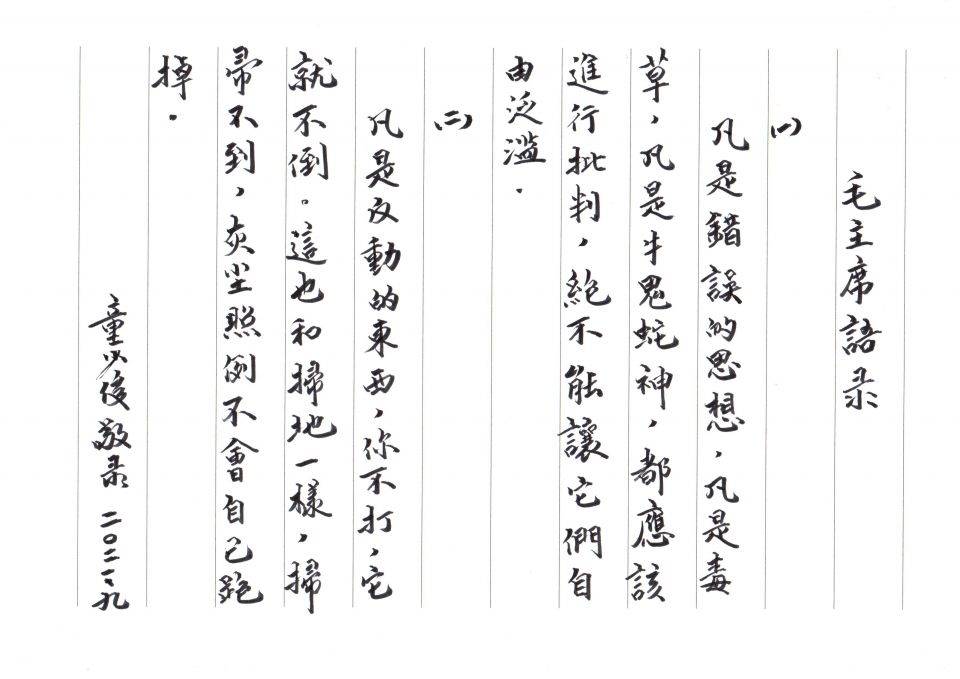 毛主席語录
(一)
凡是錯誤的思想，凡是毒
草，凡是牛鬼蛇神，都應該
進行批判，絕不能讓它們自
由泛濫.
(二)
凡是反動的東西，你不打，它
就不倒。這也和掃地一樣，掃
帚不到，灰尘照例不會自己跑
掉.
童少俊敬录 二〇二一、九